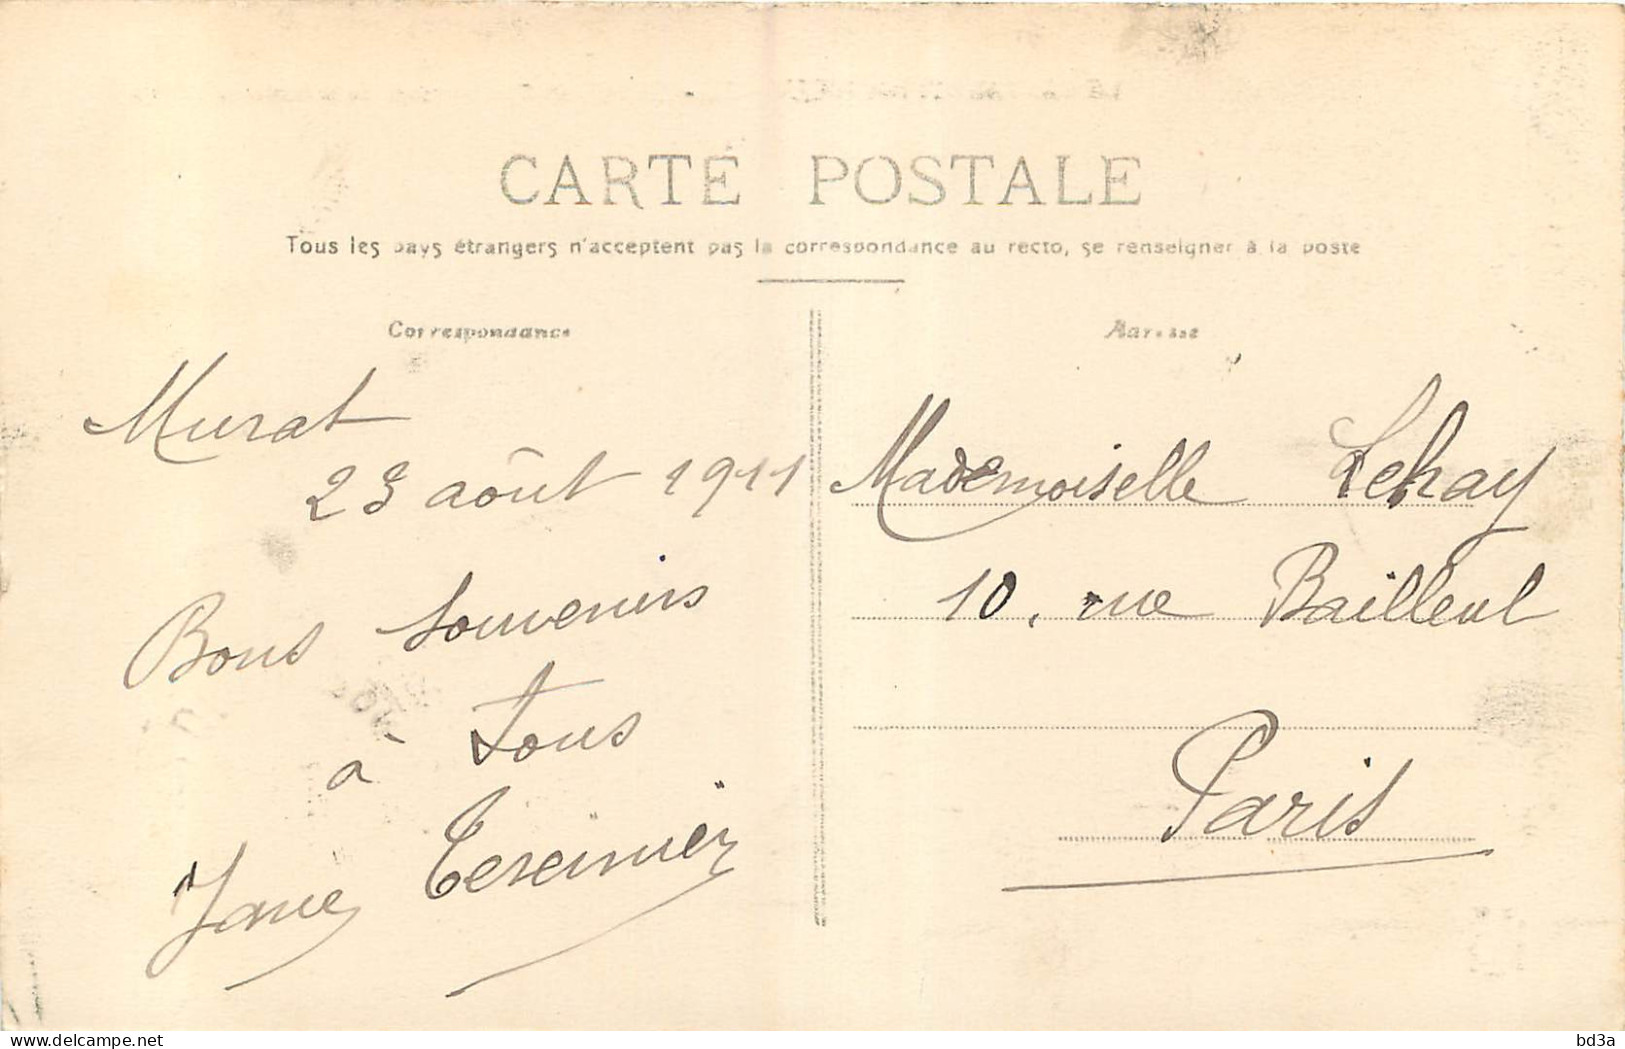 CARTE POSTALE
Tous les pays étrangers n'acceptent pas la correspondance au recto, se renseigner à la poste
Correspondance
Murat
23 août 1911
Bons souvenirs
à tous
Jane
Adresse
Mademoiselle Lehay
10, rue Bailleul
Paris
delcampe.net
bd3a